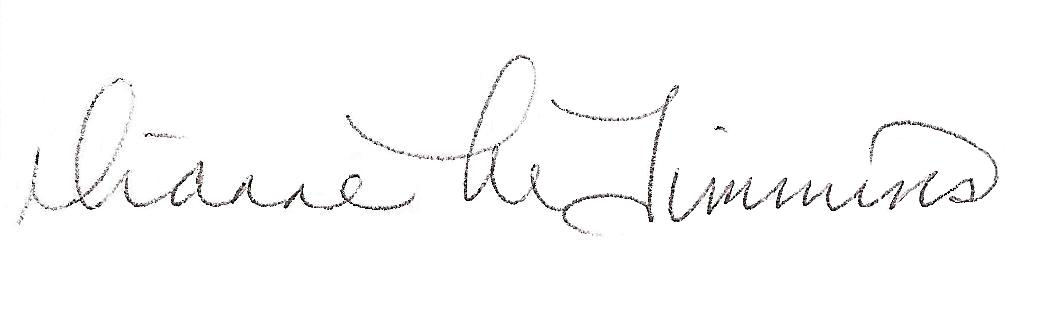 Diane M Timmins